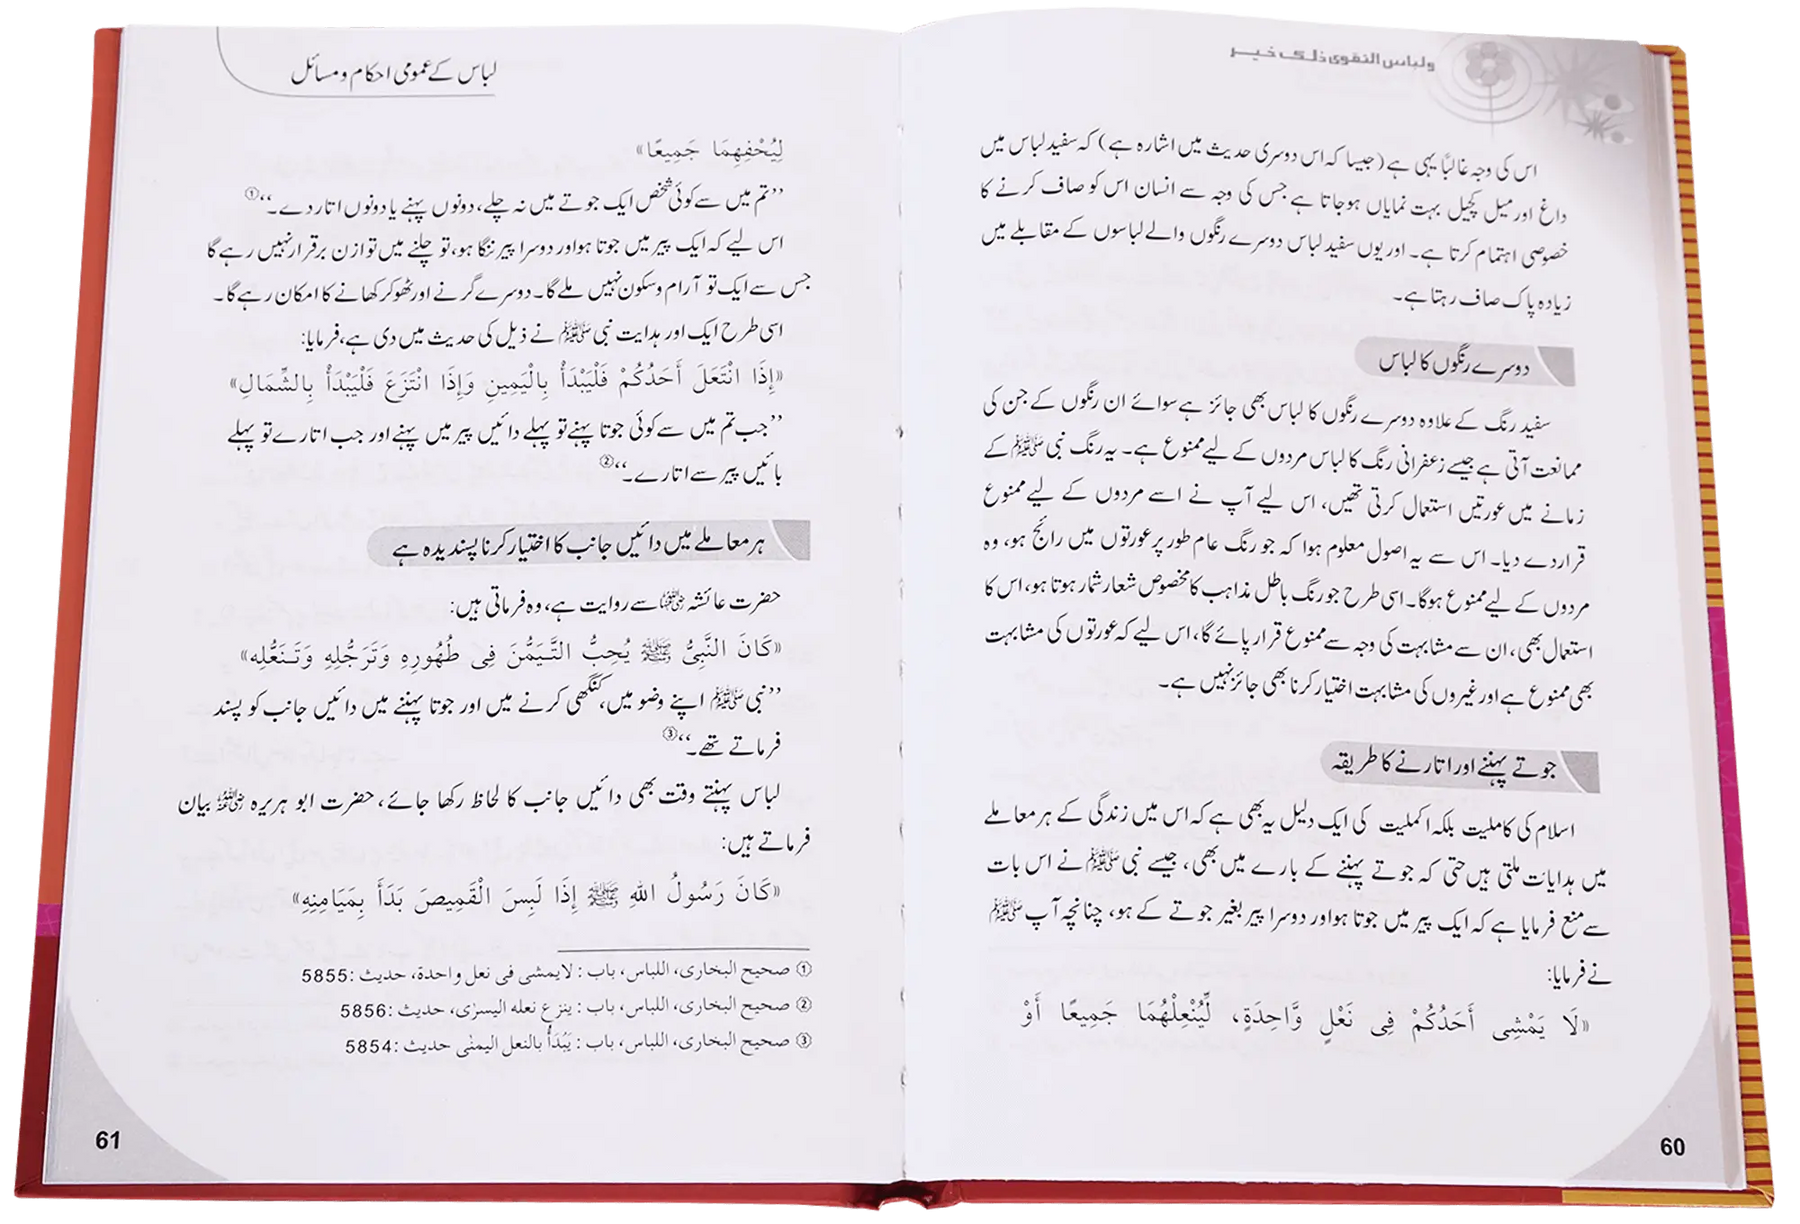 ولباس التقوى ذلك خير
اس کی وجہ غالبًا یہی ہے (جیسا کہ اس دوسری حدیث میں اشارہ ہے) کہ سفید لباس میں
داغ اور میل کچیل بہت نمایاں ہوجاتا ہے جس کی وجہ سے انسان اس کو صاف کرنے کا
خصوصی اہتمام کرتا ہے۔ اور یوں سفید لباس دوسرے رنگوں والے لباسوں کے مقابلے میں
زیادہ پاک صاف رہتا ہے۔
دوسرے رنگوں کا لباس
سفید رنگ کے علاوہ دوسرے رنگوں کا لباس بھی جائز ہے سوائے ان رنگوں کے جن کی
ممانعت آتی ہے جیسے زعفرانی رنگ کا لباس مردوں کے لیے ممنوع ہے۔ یہ رنگ نبی ﷺ کے
زمانے میں عورتیں استعمال کرتی تھیں، اس لیے آپ نے اسے مردوں کے لیے ممنوع
قرار دے دیا۔ اس سے یہ اصول معلوم ہوا کہ جو رنگ عام طور پر عورتوں میں رائج ہو، وہ
مردوں کے لیے ممنوع ہوگا۔ اسی طرح جو رنگ باطل مذاہب کا مخصوص شعار شمار ہوتا ہو، اس کا
استعمال بھی، ان سے مشابہت کی وجہ سے ممنوع قرار پائے گا، اس لیے کہ عورتوں کی مشابہت
بھی ممنوع ہے اور غیروں کی مشابہت اختیار کرنا بھی جائز نہیں ہے۔
جوتے پہننے اور اتارنے کا طریقہ
اسلام کی کاملیت بلکہ اکملیت کی ایک دلیل یہ بھی ہے کہ اس میں زندگی کے ہر معاملے
میں ہدایات ملتی ہیں حتی کہ جوتے پہننے کے بارے میں بھی، جیسے نبی ﷺ نے اس بات
سے منع فرمایا ہے کہ ایک پیر میں جوتا ہو اور دوسرا پیر بغیر جوتے کے ہو، چنانچہ آپ ﷺ
نے فرمایا:
«لَا يَمْشِى أَحَدُكُمْ فِى نَعْلٍ وَّاحِدَةٍ، لِّيُنْعِلْهُمَا جَمِيعًا أَوْ
60
لباس کے عمومی احکام و مسائل
لِيُحْفِهِمَا جَمِيعًا»
’’تم میں سے کوئی شخص ایک جوتے میں نہ چلے، دونوں پہنے یا دونوں اتار دے۔‘‘①
اس لیے کہ ایک پیر میں جوتا ہو اور دوسرا پیر ننگا ہو، تو چلنے میں توازن برقرار نہیں رہے گا
جس سے ایک تو آرام و سکون نہیں ملے گا۔ دوسرے گرنے اور ٹھوکر کھانے کا امکان رہے گا۔
اسی طرح ایک اور ہدایت نبی ﷺ نے ذیل کی حدیث میں دی ہے، فرمایا:
«إِذَا انْتَعَلَ أَحَدُكُمْ فَلْيَبْدَأْ بِالْيَمِينِ وَإِذَا انْتَزَعَ فَلْيَبْدَأْ بِالشِّمَالِ»
’’جب تم میں سے کوئی جوتا پہنے تو پہلے دائیں پیر میں پہنے اور جب اتارے تو پہلے
بائیں پیر سے اتارے۔‘‘②
ہر معاملے میں دائیں جانب کا اختیار کرنا پسندیدہ ہے
حضرت عائشہ رضی اللہ عنہا سے روایت ہے، وہ فرماتی ہیں:
«كَانَ النَّبِىُّ ﷺ يُحِبُّ التَّيَمُّنَ فِى طُهُورِهِ وَتَرَجُّلِهِ وَتَنَعُّلِه»
’’نبی ﷺ اپنے وضو میں، کنگھی کرنے میں اور جوتا پہننے میں دائیں جانب کو پسند
فرماتے تھے۔‘‘③
لباس پہنتے وقت بھی دائیں جانب کا لحاظ رکھا جائے، حضرت ابو ہریرہ رضی اللہ عنہ بیان
فرماتے ہیں:
«كَانَ رَسُولُ اللهِ ﷺ إِذَا لَبِسَ الْقَمِيصَ بَدَأَ بِمَيَامِنِهِ»
① صحيح البخارى، اللباس، باب : لايمشى فى نعل واحدة، حديث :5855
② صحيح البخارى، اللباس، باب : ينزع نعله اليسرٰى، حديث :5856
③ صحيح البخارى، اللباس، باب : يَبْدَأُ بالنعل اليمنٰى حديث :5854
61